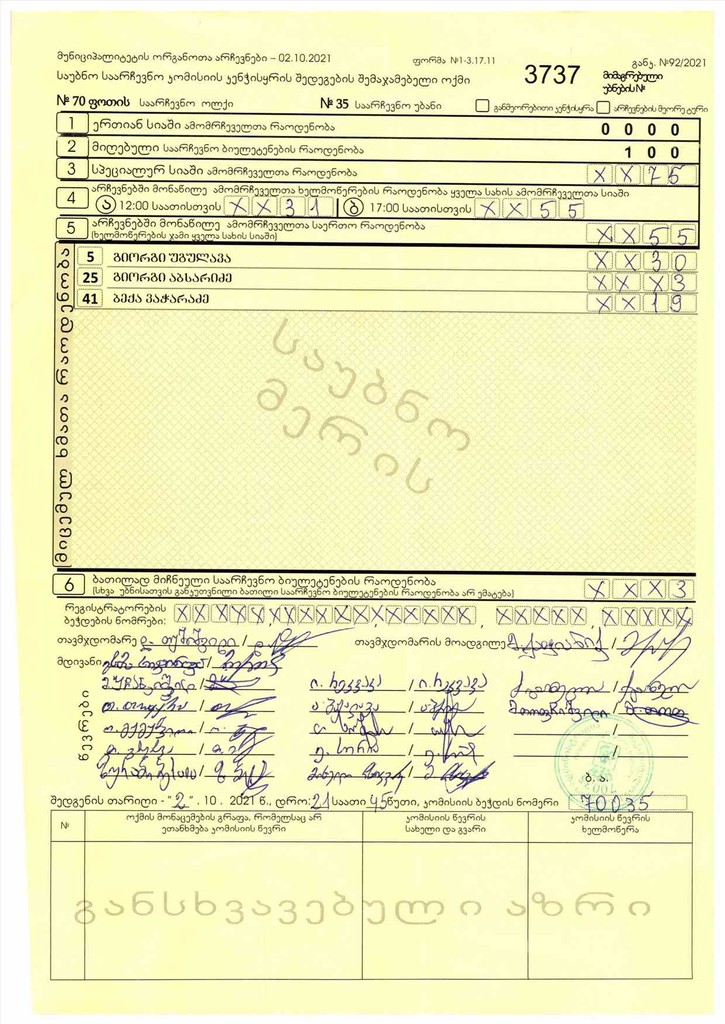 მუნიციპალიტეტის ორგანოთა არჩევნები – 02.10.2021 ფორმა №1-3.17.11 განკ. №92/2021
საუბნო საარჩევნო კომისიის კენჭისყრის შედეგების შემაჯამებელი ოქმი 3737 მიმაგრებული უბნების№
№ 70 ფოთის საარჩევნო ოლქი № 35 საარჩევნო უბანი განმეორებითი კენჭისყრა არჩევნების მეორე ტური
1 ერთიან სიაში ამომრჩეველთა რაოდენობა 0 0 0 0
2 მიღებული საარჩევნო ბიულეტენების რაოდენობა 1 0 0
3 სპეციალურ სიაში ამომრჩეველთა რაოდენობა X X 7 5
4 არჩევნებში მონაწილე ამომრჩეველთა ხელმოწერების რაოდენობა ყველა სახის ამომრჩეველთა სიაში
ა 12:00 საათისთვის X X 3 1 ბ 17:00 საათისთვის X X 5 5
5 არჩევნებში მონაწილე ამომრჩეველთა საერთო რაოდენობა
(ხელმოწერების ჯამი ყველა სახის სიაში) X X 5 5
მიცემულ ხმათა რაოდენობა
5 გიორგი უგულავა X X 3 0
25 გიორგი აბსარიძე X X X 3
41 ბექა ვაჭარაძე X X 1 9
საუბნო
მერის
6 ბათილად მიჩნეული საარჩევნო ბიულეტენების რაოდენობა
(სხვა უბნისათვის განკუთვნილი ბათილი საარჩევნო ბიულეტენების რაოდენობა არ ემატება) X X X 3
რეგისტრატორების
ბეჭდების ნომრები: X X X X X X X X X X X X X X X X , X X X X X , X X X X X
თავმჯდომარე / თავმჯდომარის მოადგილე /
მდივანი /
წევრები
ბ.ა.
შედგენის თარიღი - "2" . 10 . 2021 წ., დრო: 21 საათი 45 წუთი, კომისიის ბეჭდის ნომერი 70035
№ ოქმის მონაცემების გრაფა, რომელსაც არ ეთანხმება კომისიის წევრი კომისიის წევრის სახელი და გვარი კომისიის წევრის ხელმოწერა
განსხვავებული აზრი